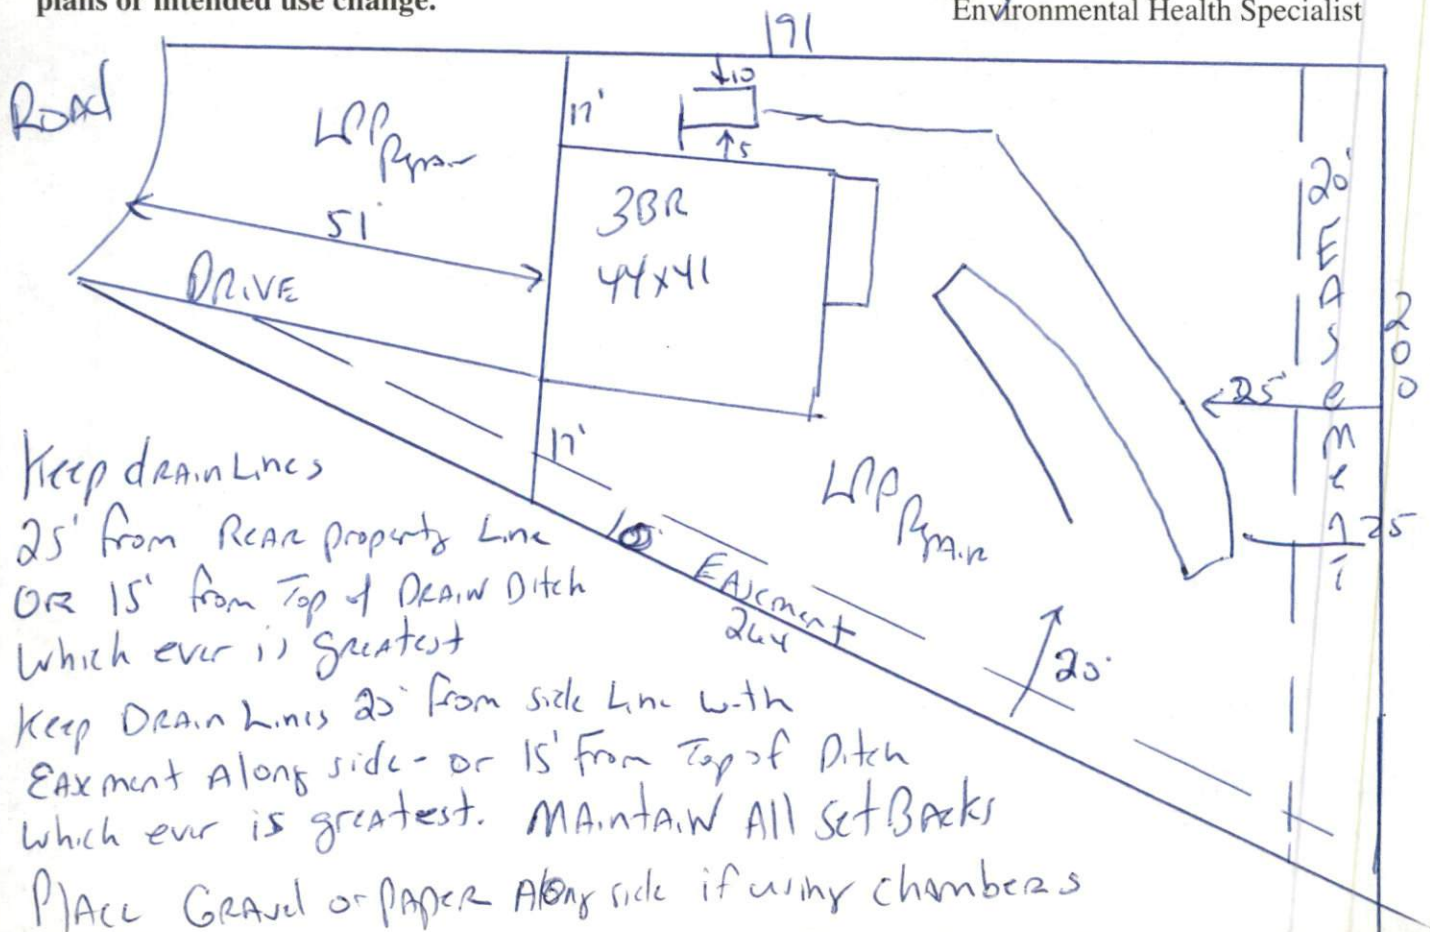 plans or intended use change.
Environmental Health Specialist
191
Road
LPP
Repair
17'
↓10
↑5
51'
DRIVE
3BR
44x41
20'
EASemeni
200
25'
25
17'
LPP
Repair
10'
EASement
244
20'
Keep drain Lines
25' from Rear property Line
OR 15' from Top of DRAIN Ditch
Which ever is greatest
Keep Drain Lines 20' from side Line with
EAXment Along side - or 15' From Top of Ditch
which ever is greatest. MAintAiN All SetBAcks
PlAce GRAvel or PAPER Along side if using chambers